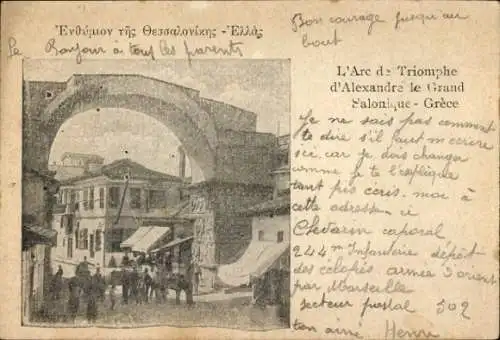 Ἐνθύμιον τῆς Θεσσαλονίκης - Ἑλλάς
Le Bonjour à tous les parents
Bon courage jusqu'au
bout
L'Arc de Triomphe
d'Alexandre le Grand
Salonique - Grèce
Je ne sais pas comment
te dire s'il faut m'ecrire
ici car je dois changer
comme je te l'explique
tant pis ecris moi à
cette adresse ci
caporal
244m Infanterie dépôt
des eclopés armée d'orient
par Marseille
secteur postal 502
ton aimé Henri